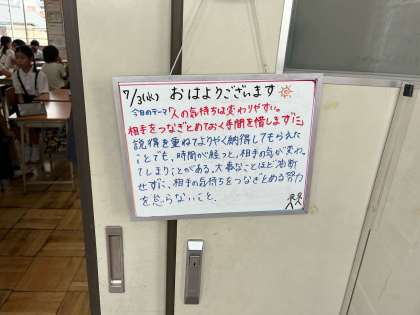 7/3(水) おはようございます
今日のテーマ「人の気持ちは変わりやすい。
相手をつなぎとめておく手間を惜しまずに」
説得を重ねてようやく納得してもらえた
ことでも、時間が経つと、相手の気が変わっ
てしまうことがある。大事なことほど油断
せずに、相手の気持ちをつなぎとめる努力
を怠らないこと。